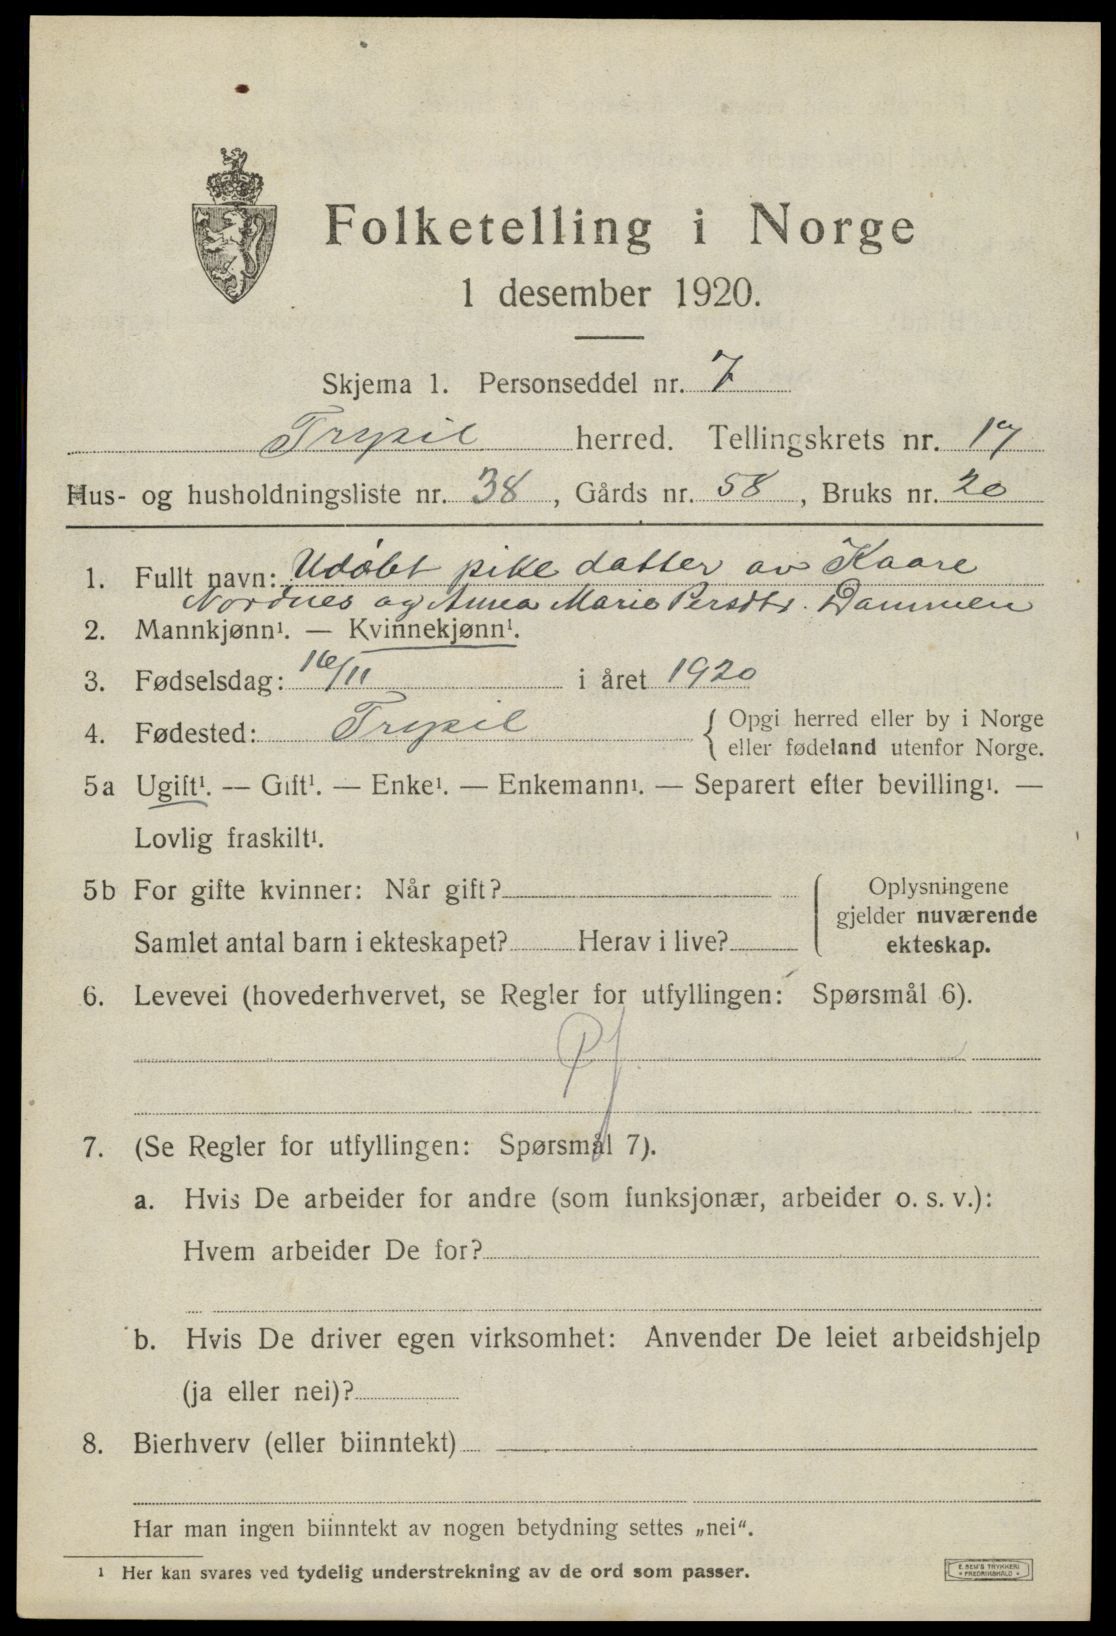 Folketelling i Norge
1 desember 1920.
Skjema 1. Personseddel nr. 7
Trysil herred. Tellingskrets nr. 17
Hus- og husholdningsliste nr. 38, Gårds nr. 58, Bruks nr. 20
1. Fullt navn: Udøbt pike datter av Kaare
Nordnes og Anna Marie Persdtr. Dammen
2. Mannkjønn¹. — Kvinnekjønn¹.
3. Fødselsdag: 16/11 i året 1920
4. Fødested: Trysil { Opgi herred eller by i Norge
eller fødeland utenfor Norge.
5a Ugift¹. — Gift¹. — Enke¹. — Enkemann¹. — Separert efter bevilling¹. —
Lovlig fraskilt¹.
5b For gifte kvinner: Når gift?
Samlet antal barn i ekteskapet? Herav i live?
{ Oplysningene
gjelder nuværende
ekteskap.
6. Levevei (hovederhvervet, se Regler for utfyllingen: Spørsmål 6).
Pf
7. (Se Regler for utfyllingen: Spørsmål 7).
a. Hvis De arbeider for andre (som funksjonær, arbeider o. s. v.):
Hvem arbeider De for?
b. Hvis De driver egen virksomhet: Anvender De leiet arbeidshjelp
(ja eller nei)?
8. Bierhverv (eller biinntekt)
Har man ingen biinntekt av nogen betydning settes „nei“.
¹ Her kan svares ved tydelig understrekning av de ord som passer.
E. SEM'S TRYKKERI
FREDRIKSHALD